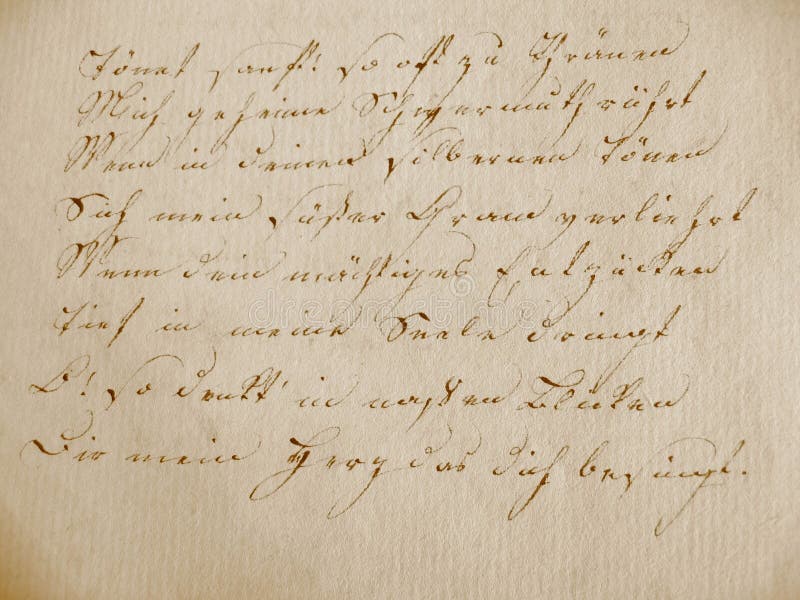 Tönet sanft! so oft zu Thränen
Mich geheime Schwermuth rührt
Wenn in deinen silbernen Tönen
Sich mein süßer Gram verliehrt
Wenn dein mächtiges Entzücken
Tief in meine Seele dringt
O! so dankt' in naßen Blicken
Dir mein Herz das dich besingt.
dreamstime